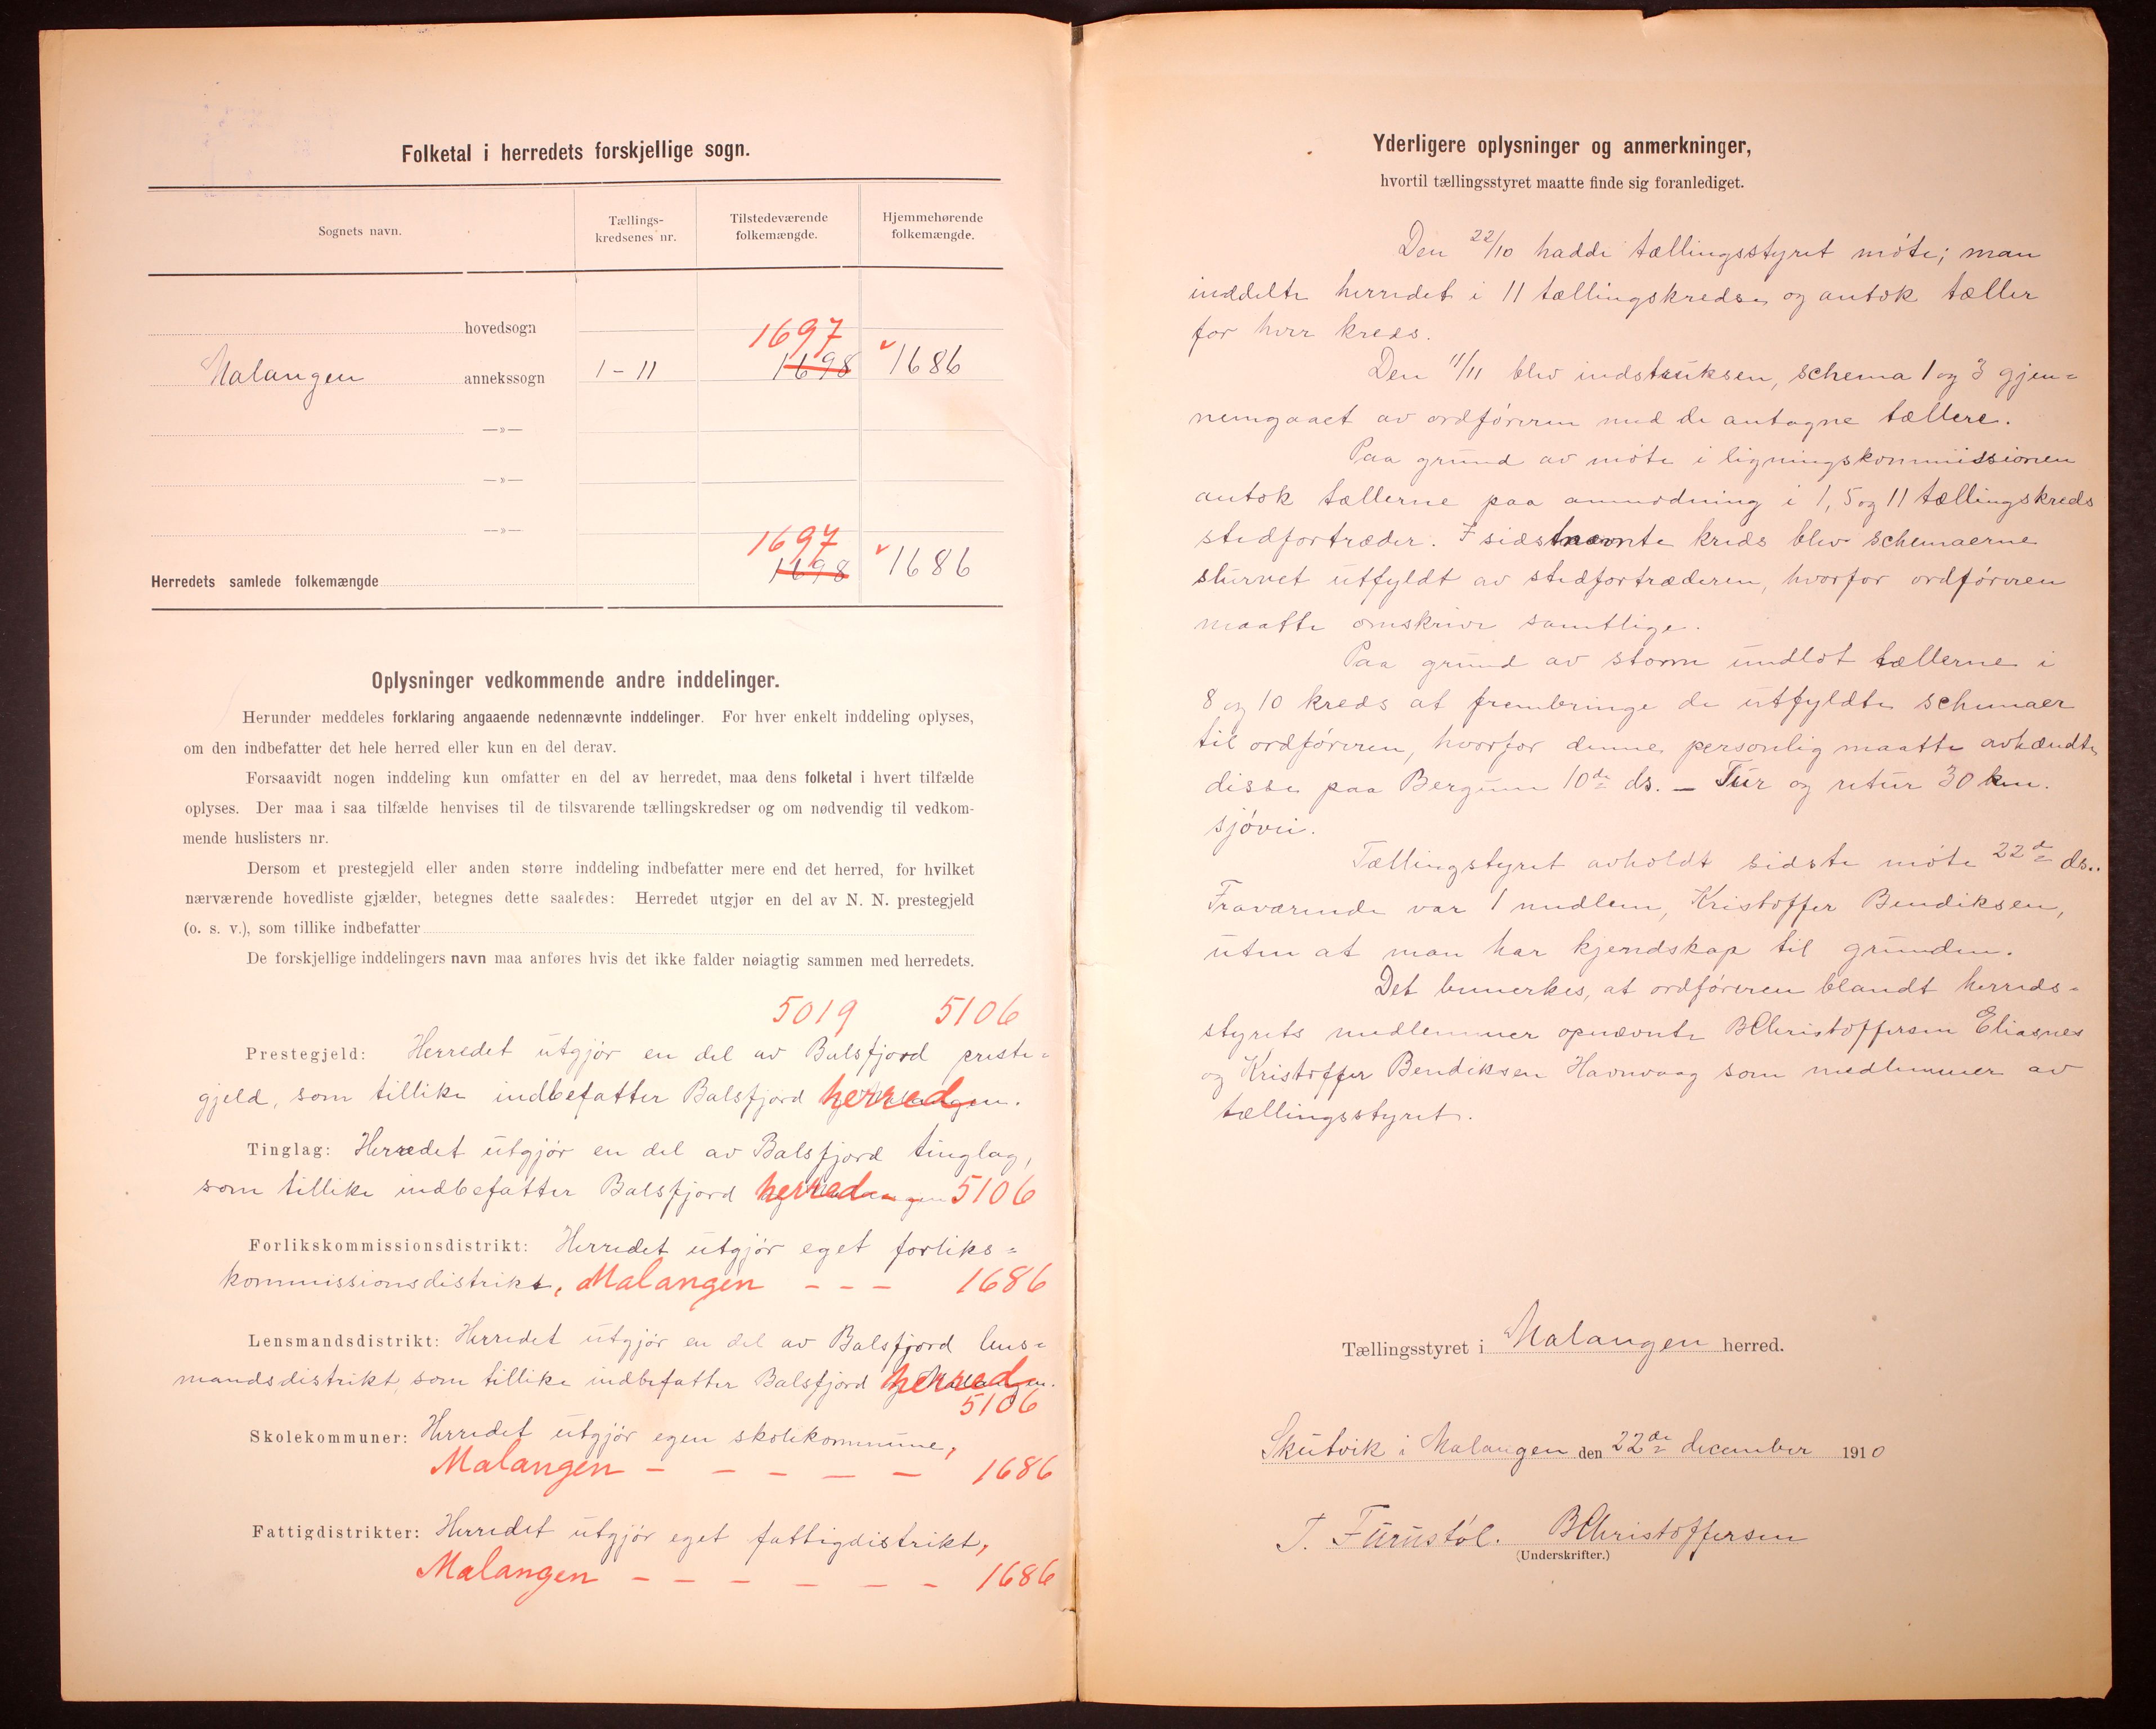 Folketal i herredets forskjellige sogn.
Sognets navn.
Tællings-
kredsenes nr.
Tilstedeværende
folkemængde.
Hjemmehørende
folkemængde.
hovedsogn
1697
Malangen annekssogn 1-11 1698 1686
—»—
—»—
—»—
1697
Herredets samlede folkemængde 1698 1686
Oplysninger vedkommende andre inddelinger.
Herunder meddeles forklaring angaaende nedennævnte inddelinger. For hver enkelt inddeling oplyses,
om den indbefatter det hele herred eller kun en del derav.
Forsaavidt nogen inddeling kun omfatter en del av herredet, maa dens folketal i hvert tilfælde
oplyses. Der maa i saa tilfælde henvises til de tilsvarende tællingskredser og om nødvendig til vedkom-
mende huslisters nr.
Dersom et prestegjeld eller anden større inddeling indbefatter mere end det herred, for hvilket
nærværende hovedliste gjælder, betegnes dette saaledes: Herredet utgjør en del av N. N. prestegjeld
(o. s. v.), som tillike indbefatter
De forskjellige inddelingers navn maa anføres hvis det ikke falder nøiagtig sammen med herredets.
5019 5106
Prestegjeld: Herredet utgjør en del av Balsfjord preste=
gjeld, som tillike indbefatter Balsfjord herred
Tinglag: Herredet utgjør en del av Balsfjord tinglag,
som tillike indbefatter Balsfjord herred 5106
Forlikskommissionsdistrikt: Herredet utgjør eget forliks=
kommissionsdistrikt, Malangen - - - 1686
Lensmandsdistrikt: Herredet utgjør en del av Balsfjord lens=
mandsdistrikt, som tillike indbefatter Balsfjord herred
5106
Skolekommuner: Herredet utgjør egen skolekommune,
Malangen - - - - - 1686
Fattigdistrikter: Herredet utgjør eget fattigdistrikt,
Malangen - - - - - - 1686
Yderligere oplysninger og anmerkninger,
hvortil tællingsstyret maatte finde sig foranlediget.
Den 22/10 hadde tællingsstyret møte; man
inddelte herredet i 11 tællingskredse og antok tæller
for hver kreds.
Den 11/11 blev indstruksen, schema 1 og 3 gjen=
nemgaaet av ordføreren med de antagne tællere.
Paa grund av møte i ligningskommissionen
antok tællerne paa anmodning i 1, 5 og 11 tællingskreds
stedfortræder. I sidstnævnte kreds blev schemaerne
sturvet utfyldt av stedfortræderen, hvorfor ordføreren
maatte omskrive samtlige.
Paa grund av storm undlot tællerne i
8 og 10 kreds at frembringe de utfyldte schemaer
til ordføreren, hvorfor denne personlig maatte avhændte
disse paa Bergum 10de ds. — Tur og retur 30 km.
sjøvei.
Tællingstyret avholdt sidste møte 22de ds..
Fraværende var 1 medlem, Kristoffer Bendiksen,
uten at man har kjendskap til grunden.
Det bemerkes, at ordføreren blandt herreds=
styrets medlemmer opnævnte BChristoffersen Eliasnes
og Kristoffer Bendiksen Havnvaag som medlemmer av
tællingsstyret.
Tællingsstyret i Malangen herred.
Skutvik i Malangen den 22de december 1910
T. Furustøl. BChristoffersen
(Underskrifter.)